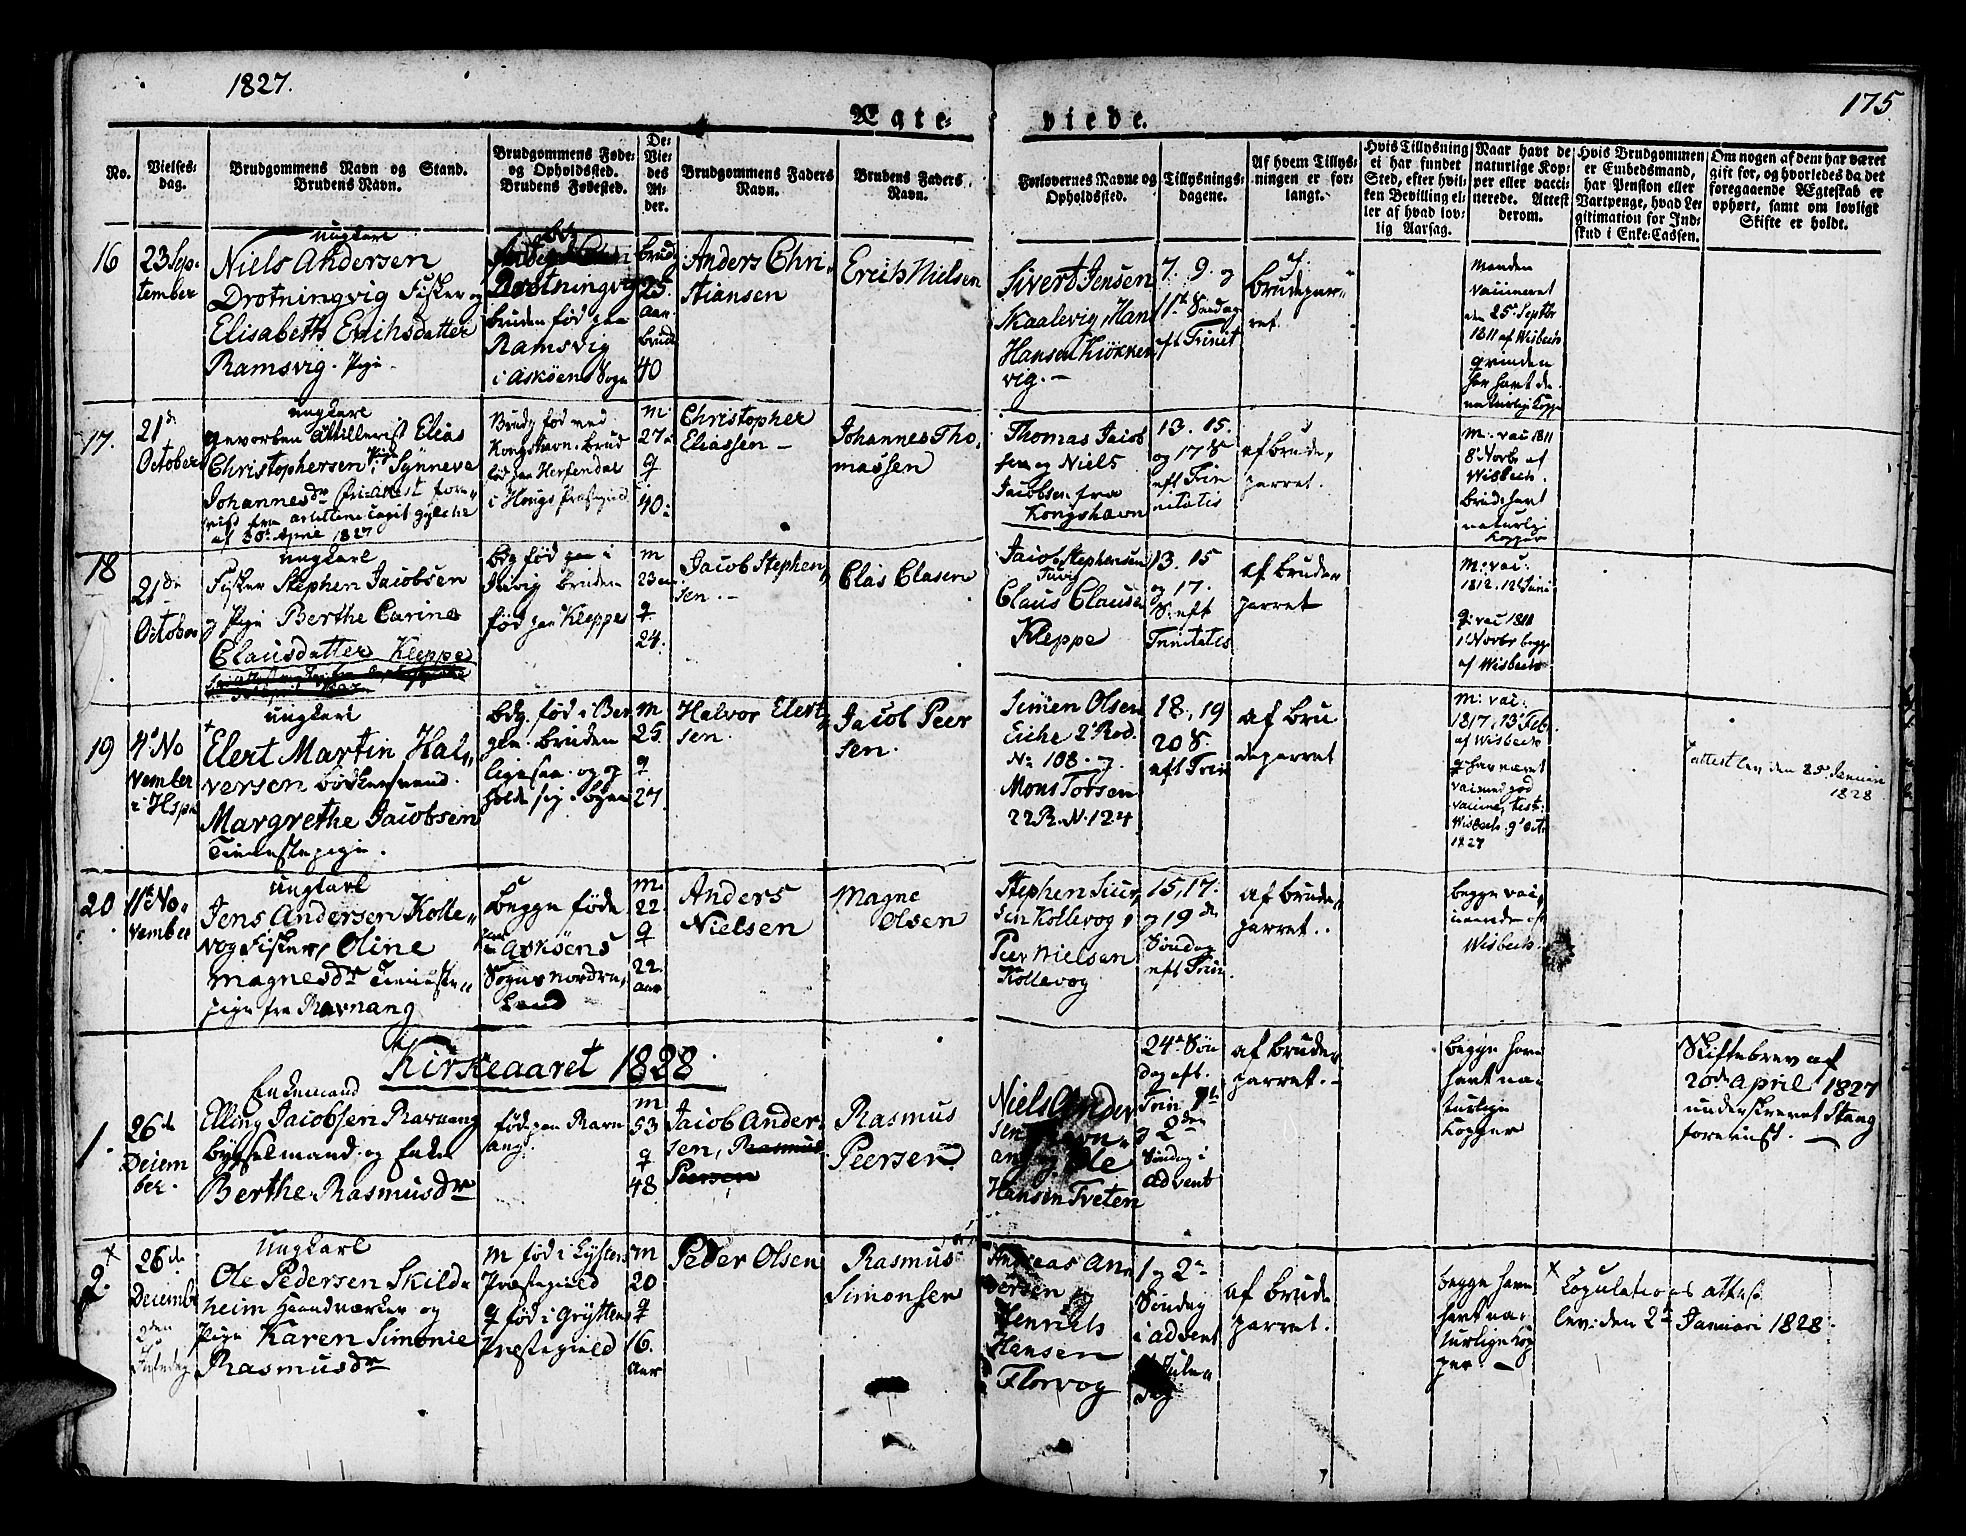 1827.
175.
Ægte-
viede.
No.
Vielses-
dag.
Brudgommens Navn og Stand.
Brudens Navn.
Brudgommens Føde-
og Opholdsted.
Brudens Fødested.
De-
Vie-
des
Al-
der.
Brudgommens Faders
Navn.
Brudens Faders
Navn.
Forlovernes Navne og
Opholdsted.
Tillysnings-
dagene.
Af hvem Tillys-
ningen er for-
langt.
Hvis Tillysning
ei har fundet
Sted, efter hvil-
ken Bevilling el-
ler af hvad lov-
lig Aarsag.
Naar havt de
naturlige Kop-
per eller vacci-
nerede. Attest
derom.
Hvis Brudgommen
er Embedsmand,
har Pension eller
Vartpenge, hvad Le-
gitimation for Ind-
skud i Enke-Cassen.
Om nogen af dem har været
gift før, og hvorledes da det
foregaaende Ægteskab er
ophørt, samt om lovligt
Skifte er holdt.
16
23 Sep-
tember
ungkarl
Niels Andersen
Drotningvig Fisker og
Elisabeth Erichsdatter
Ramsvig. Pige.
Drotningvig
bruden fød paa
Ramsvig
i Askøens Sogn
brudg
25
aar
brud
40
Anders Chri-
stiansen
Erich Nielsen
Sivert Jensen
Skaalevig, Hans
Hansen Kiøkken
vig.
7. 9. og
11te Søndag
eft Trinit
af
brudepar-
ret.
Manden
vaccineret
den 25 Septbr
1811 af Wisbech
qvinden
har havt de
naturlige Kopper
17.
21de
October
ungkarl
gevorben Attillerist Elias
Christophersen Pige Synneve
Johannesdr
af 30 April 1827
Brudg fød ved
Kongshavn. Brud
fød paa Hertendal
i Hougs Præstegield
m.
27.
q
40.
Christopher
Eliassen
Johannes Tho-
massen
Thomas Jacob
sen og Niels
Jacobsen fra
Kongshavn
13. 15.
og 17 S
eft Tri
nitatis
af brude-
parret.
M: vac 1811
8 Novbr af
Wisbech.
Brud: havt
naturlig
Kopper
18
21de
October
ungkarl
Fisker Stephen Jacobsen
og Pige Berthe Carine
Clausdatter Kleppe
bdg fød paa i
Juvig bruden
fød paa Kleppe
m
23
q
24.
Jacob Stephen-
sen.
Clas Clasen
Jacob Stephensen
Juvig
Claus Clausen
Kleppe
13. 15
og 17.
S. eft
Trinitatis
af brude-
parret
M: vac:
1812. 12 Juni
q: vac 1811
1 Novbr begge
af Wisbech
19
4de No
vember
i Hsp
ungkarl
Elert Martin Hal-
versen bødkersvend.
Margrethe Jacobsen
Tienestepige.
bdg. fød i Ber
gen. bruden
ligesaa. og op
holde sig i byen
m
25.
q
27.
Halvor Elert-
sen.
Jacob Peer
sen.
Simen Olsen
Eiche 2 Rod.
No 108. og
Mons Torsen
22 R. N. 124
18, 19
20 S.
eft Trin
af bru
deparret
M: vac:
1817, 13 Feb.
af Wisbech
q har været
vaccined god
vaccine, test:
Wisbech. 9 Oct
1827
attest lev den 25 Januar
1828
20
11te No-
vember
ungkarl
Jens Andersen Kolle-
vog Fisker, Oline
Magnesdr Tieneste-
pige fra Ravnang
begge føde
paa Askøens
Sogns nordre
Land
m.
22.
q
22.
aar
Anders
Nielsen
Magne
Olsen
Stephen Siur-
sen Kollevog,
Peer Nielsen
Kollevog
15, 17.
og 19de
Søndag
eft Trin.
af brude-
parret.
begge vac-
cinerede af
Wisbech.
Kirkeaaret 1828
1.
26de
Decem
ber.
Enkemand
Elling Jacobsen Ravnang
bøgselmand og Enke
Berthe Rasmusdr
fød paa Ravn
ang.
m
53
q
48.
Jacob Ander-
sen, Rasmus
Peersen
Rasmus
Peersen
Niels Ander
sen Ravn-
ang og Ole
Hansen Tveten
24de Søn
dag eft.
Trin 1te
og 2den
Søndag i
advent
af brude-
parret.
begge have
havt na-
turlige
Kopper
Skiftebrev af
20de April 1827
underskrevet Stang
forevist.
2.
26de
Decembr
2den
Juledag
ungkarl
Ole Pedersen Skild-
heim Haandværker og
Pige Karen Simonie
Rasmusdr
M fød i Lysters
Præstegield
q fød i Grytten
Præstegield
m
20
q
16.
aar
Peder Olsen
Rasmus
Simonsen
Andreas An-
dersen og
Henrich
Hansen
Florvog
1 og 2den
Søndag
i advent
Jule-
dag
af brude
parret.
begge have
havt na-
turlige Kop
per.
Copulations attest
lev: den 2den Januari 1828.